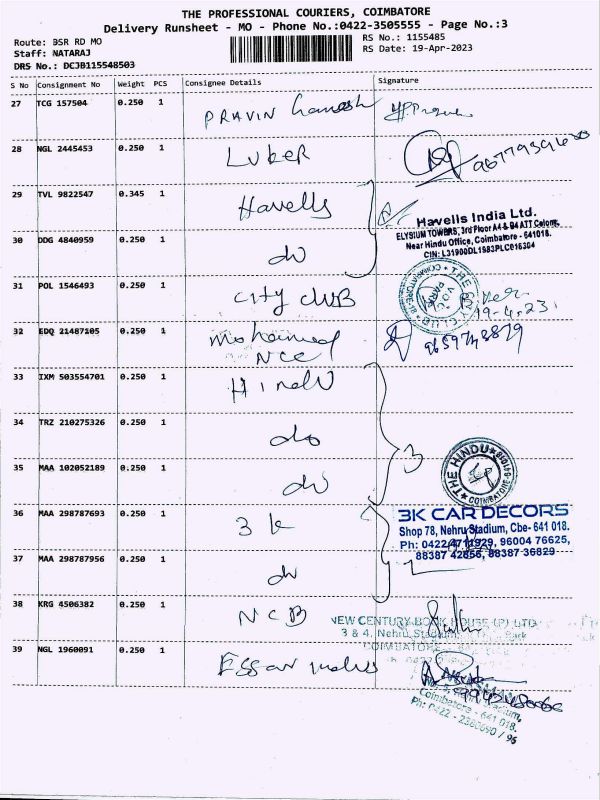 THE PROFESSIONAL COURIERS, COIMBATORE
Delivery Runsheet - MO - Phone No.:0422-3505555 - Page No.:3
Route: BSR RD MO
Staff: NATARAJ
DRS No.: DCJB115548503
RS No.: 1155485
RS Date: 19-Apr-2023
S No Consignment No Weight PCS Consignee Details Signature
27 TCG 157504 0.250 1 PRAVIN
28 NGL 2445453 0.250 1
29 TVL 9822547 0.345 1 Havells
Havells India Ltd.
ELYSIUM TOWERS, 3rd Floor A4 & B4 ATT Colony,
Near Hindu Office, Coimbatore - 641018.
CIN: L31900DL1983PLC016304
30 DDG 4840959 0.250 1 do
31 POL 1546493 0.250 1 City club
19-4.23
32 EDQ 21487105 0.250 1 Mohamed
NCC
33 IXM 503554701 0.250 1 Hindu
34 TRZ 210275326 0.250 1 do
3
35 MAA 102052189 0.250 1 do
THE HINDU
COIMBATORE
36 MAA 298787693 0.250 1 3 k
3K CAR DECORS
Shop 78, Nehru Stadium, Cbe- 641 018.
Ph: 0422 4711929, 96004 76625,
88387 42856, 88387 36829
37 MAA 298787956 0.250 1 do
38 KRG 4506382 0.250 1 NCB
NEW CENTURY BOOK HOUSE (P) LTD
3 & 4, Nehru Stadium, Park
COIMBATORE
39 NGL 1960091 0.250 1 Essar
Stadium,
Coimbatore - 641 018.
Ph: 0422 - 2380690 / 96